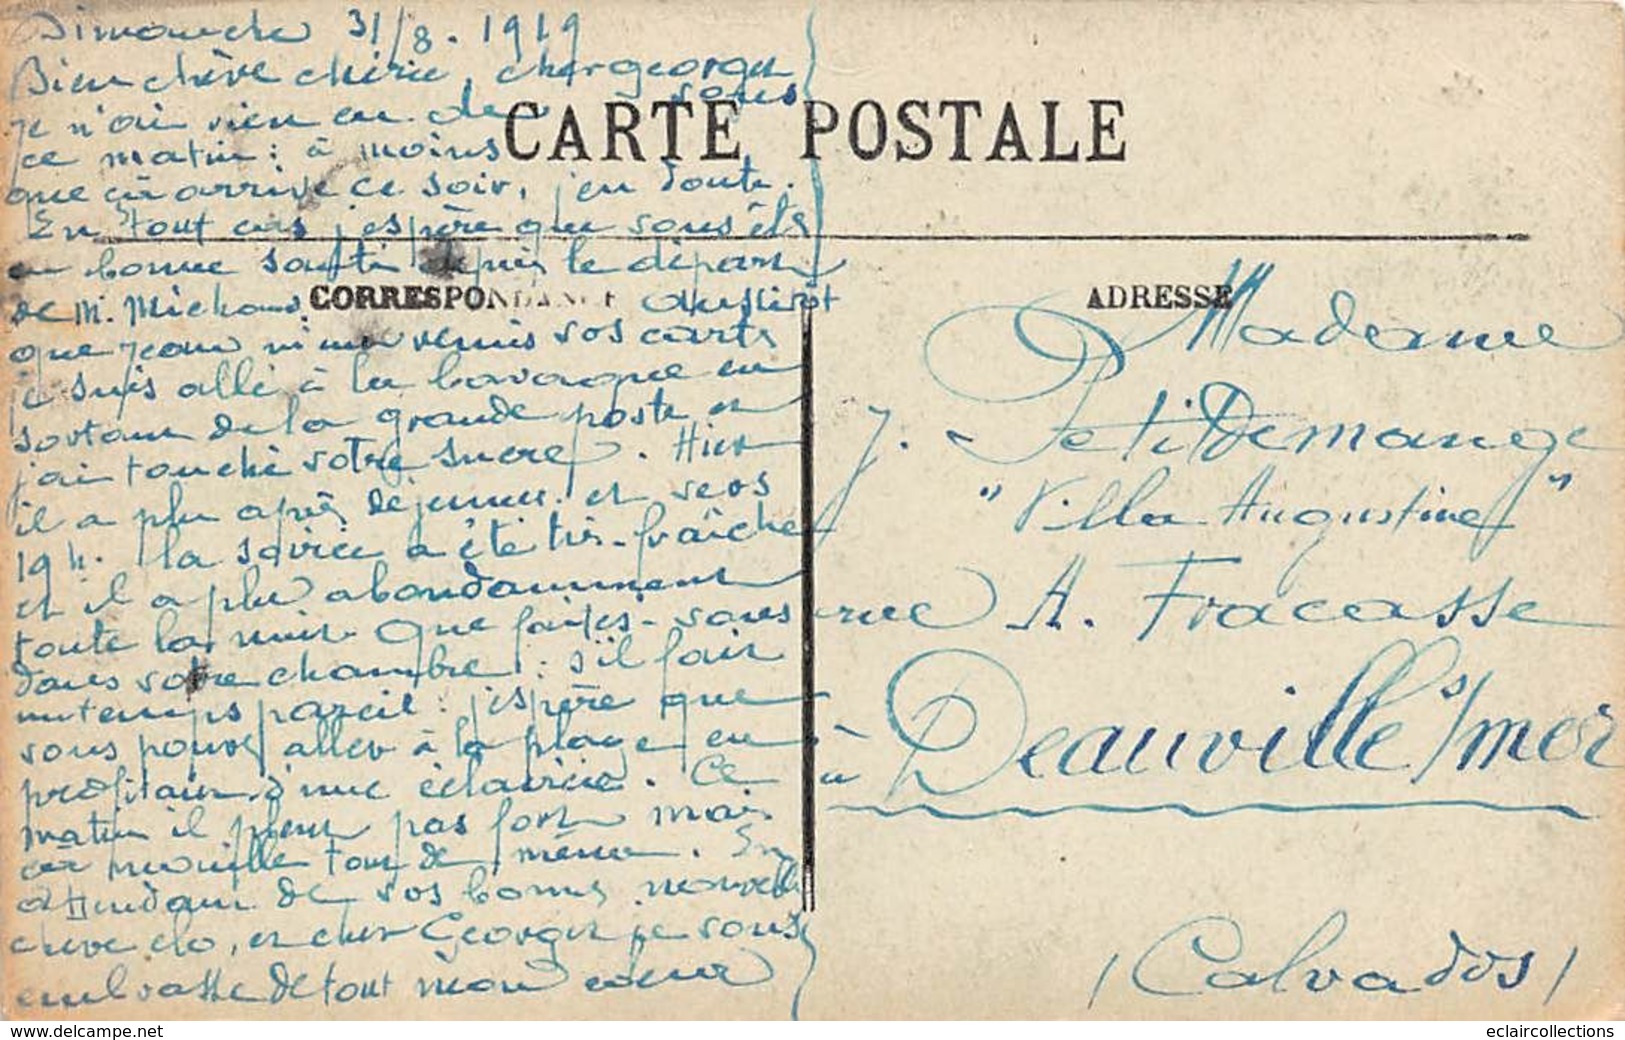 Dimanche 31/8. 1919
Bien chère chérie, cher georges
je n'ai rien eu de vous
ce matin : à moins
que ça arrive ce soir, j'en doute.
En tout cas j'espère que vous êtes
en bonne santé depuis le départ
de M. Michaud. Aussitôt
que j'eau vos carte
je suis allé à la en
sortant de la grande poste et
j'ai touché votre sucre. Hier
il a plu après déjeuner et vers
19h. la soirée a été très fraîche
et il a plu abondamment
toute la nuit. Que faites-vous
dans votre chambre : s'il fait
un temps pareil : j'espère que
vous pouvez aller à la plage en
profitant d'une éclaircie. Ce
matin il pleut pas fort mais
ça mouille tout de même. En
attendant de vos bonnes nouvelles
chère clo, et cher Georges je vous
embrasse de tout mon coeur
CARTE POSTALE
CORRESPONDANCE
ADRESSE
Madame
J. Petitdemange
"Villa Augustine"
rue A. Fracasse
à Deauville s/mer
(Calvados)
www.delcampe.net
eclaircollections